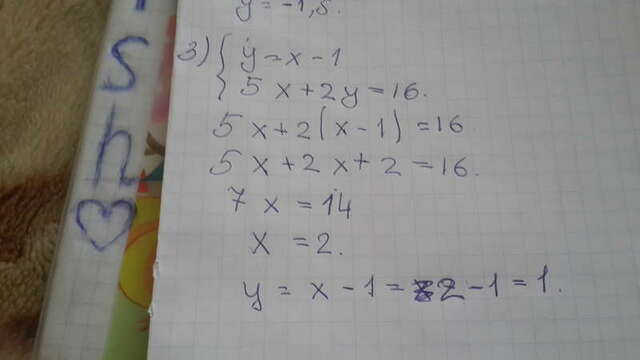 y = -1,5.
3) { y = x - 1
5x + 2y = 16.
5x + 2(x - 1) = 16
5x + 2x + 2 = 16.
7x = 14
x = 2.
y = x - 1 = 2 - 1 = 1.